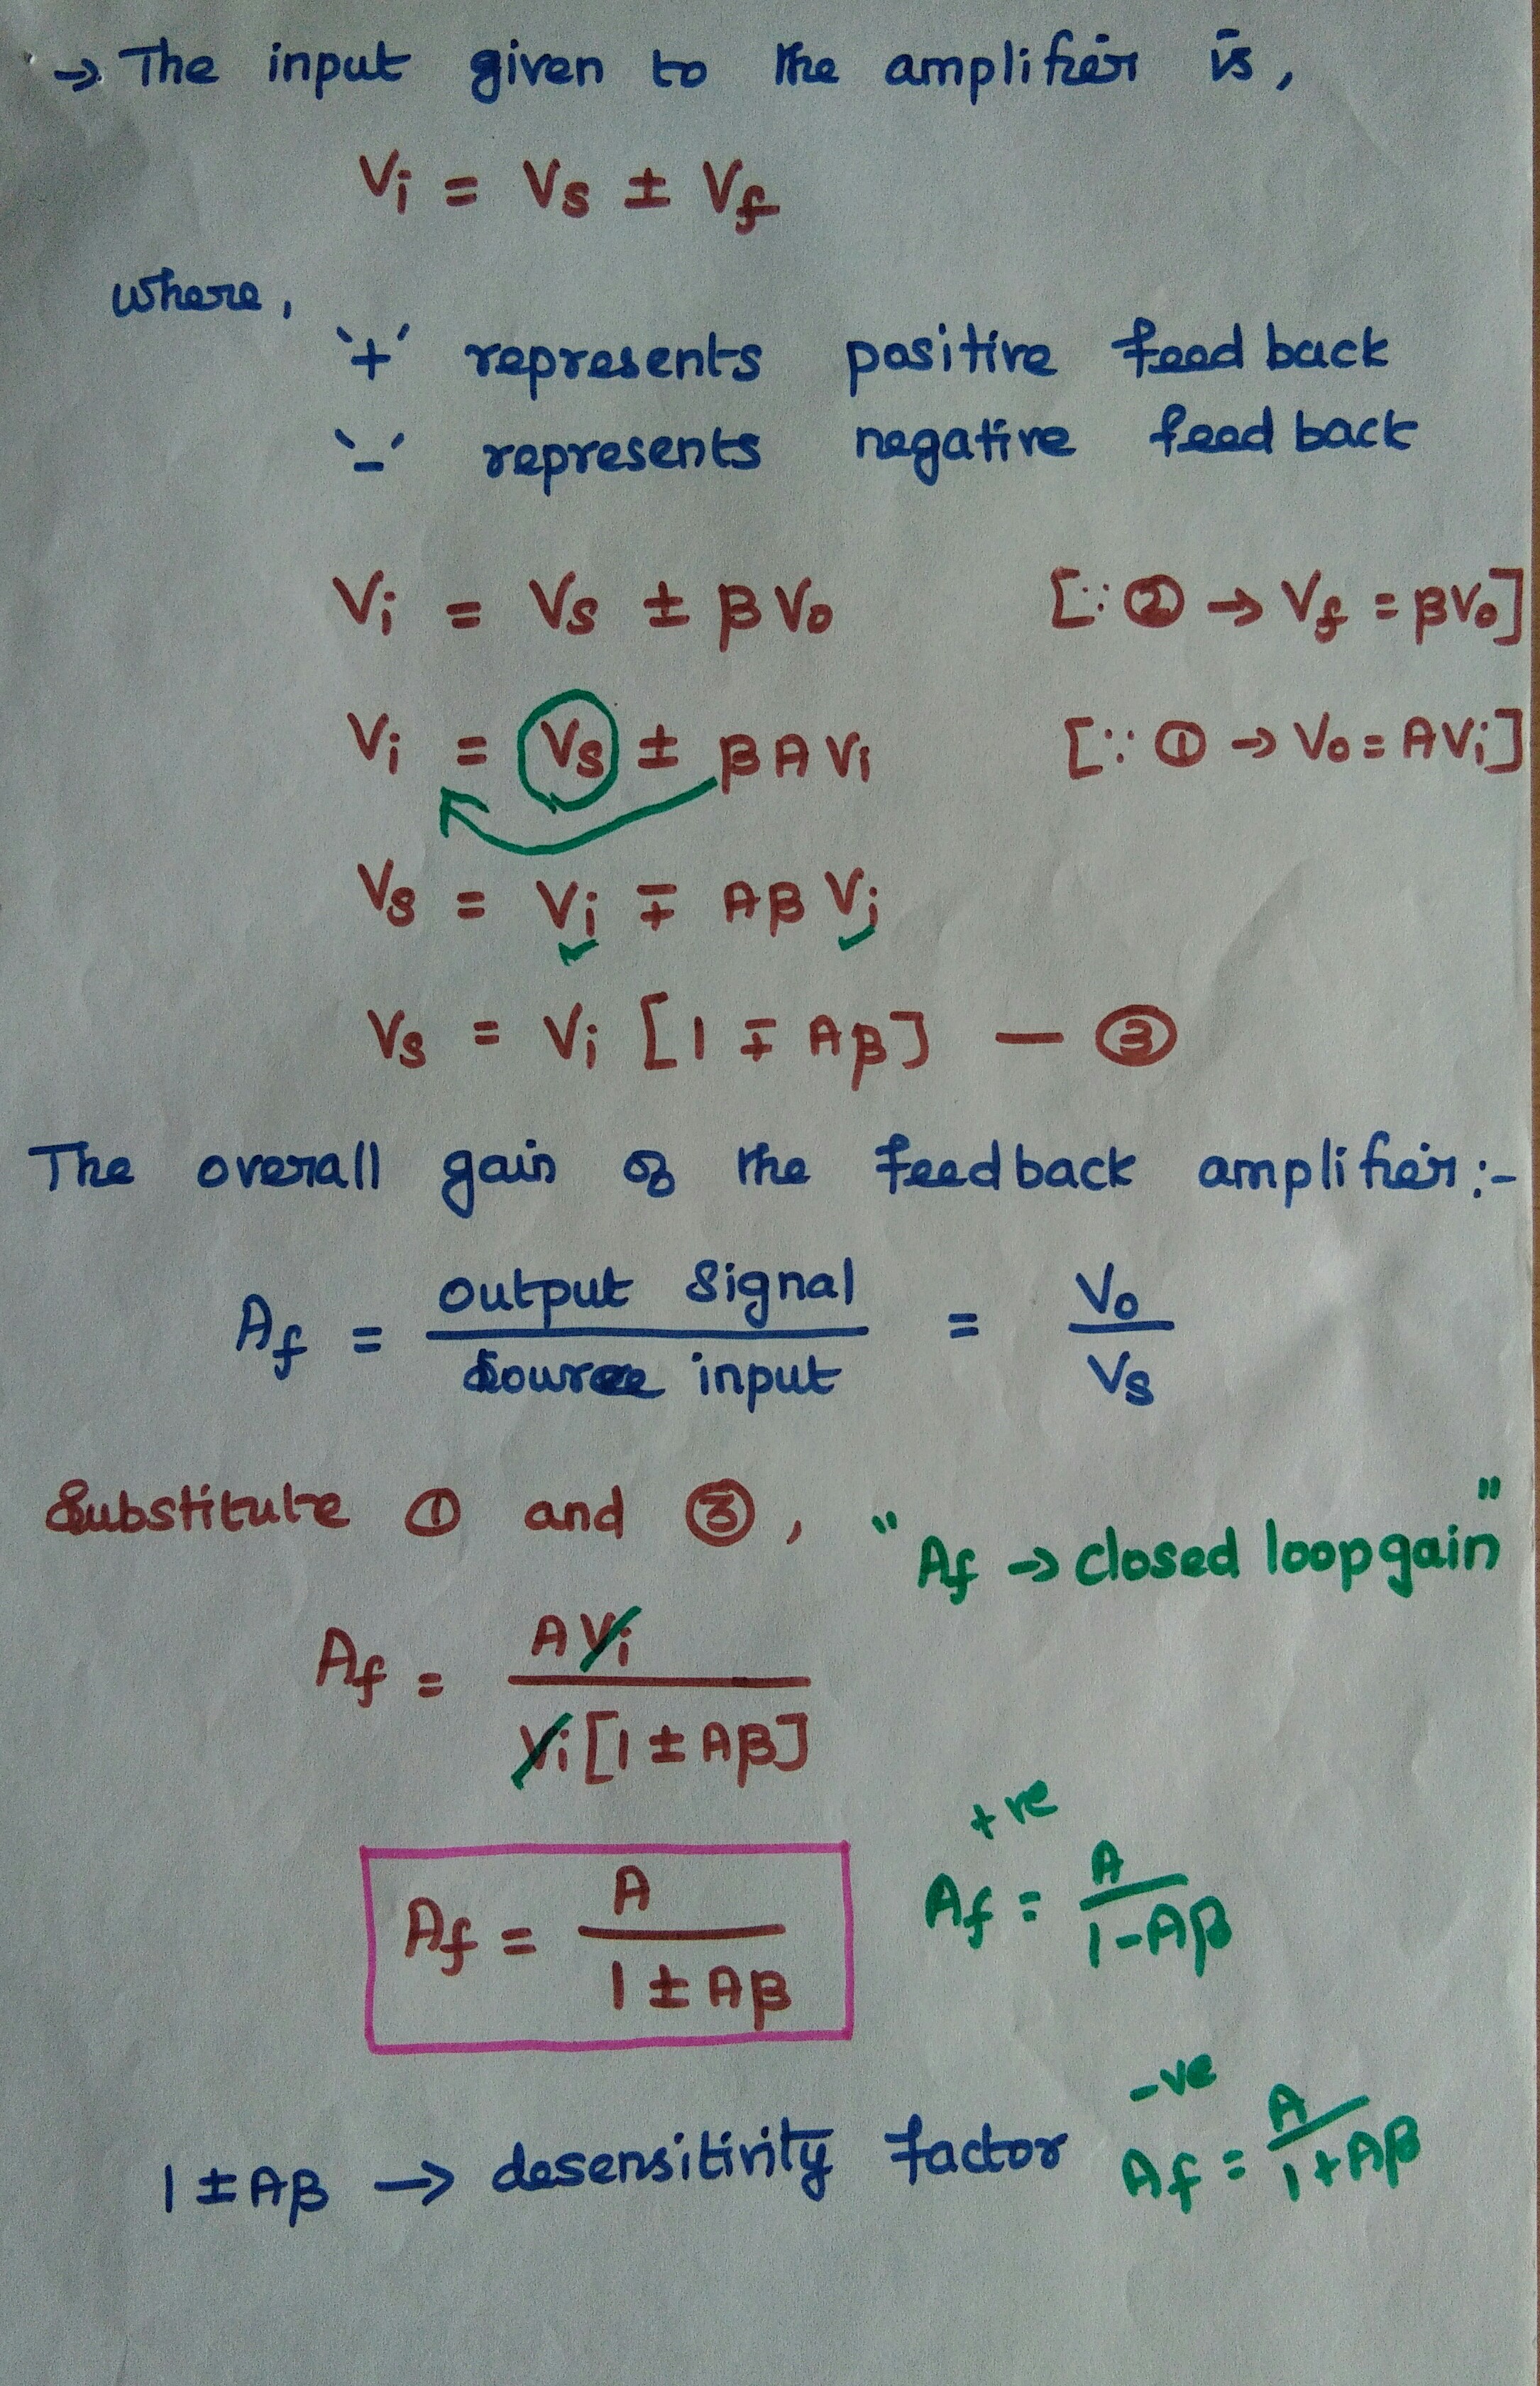 → The input given to the amplifier is,
Vi = Vs ± Vf
where,
'+' represents positive feed back
'-' represents negative feed back
Vi = Vs ± βVo [∵ ② → Vf = βVo]
Vi = Vs ± βAVi [∵ ① → Vo = AVi]
Vs = Vi ∓ AβVi
Vs = Vi [1 ∓ Aβ] — ③
The overall gain of the feedback amplifier :-
Af = output signal / source input = Vo / Vs
Substitute ① and ③, "Af → closed loop gain"
Af = AVi / Vi[1 ± Aβ]
+ve
Af = A / 1 ± Aβ Af = A / 1-Aβ
-ve
1 ± Aβ → desensitivity factor Af = A / 1+Aβ